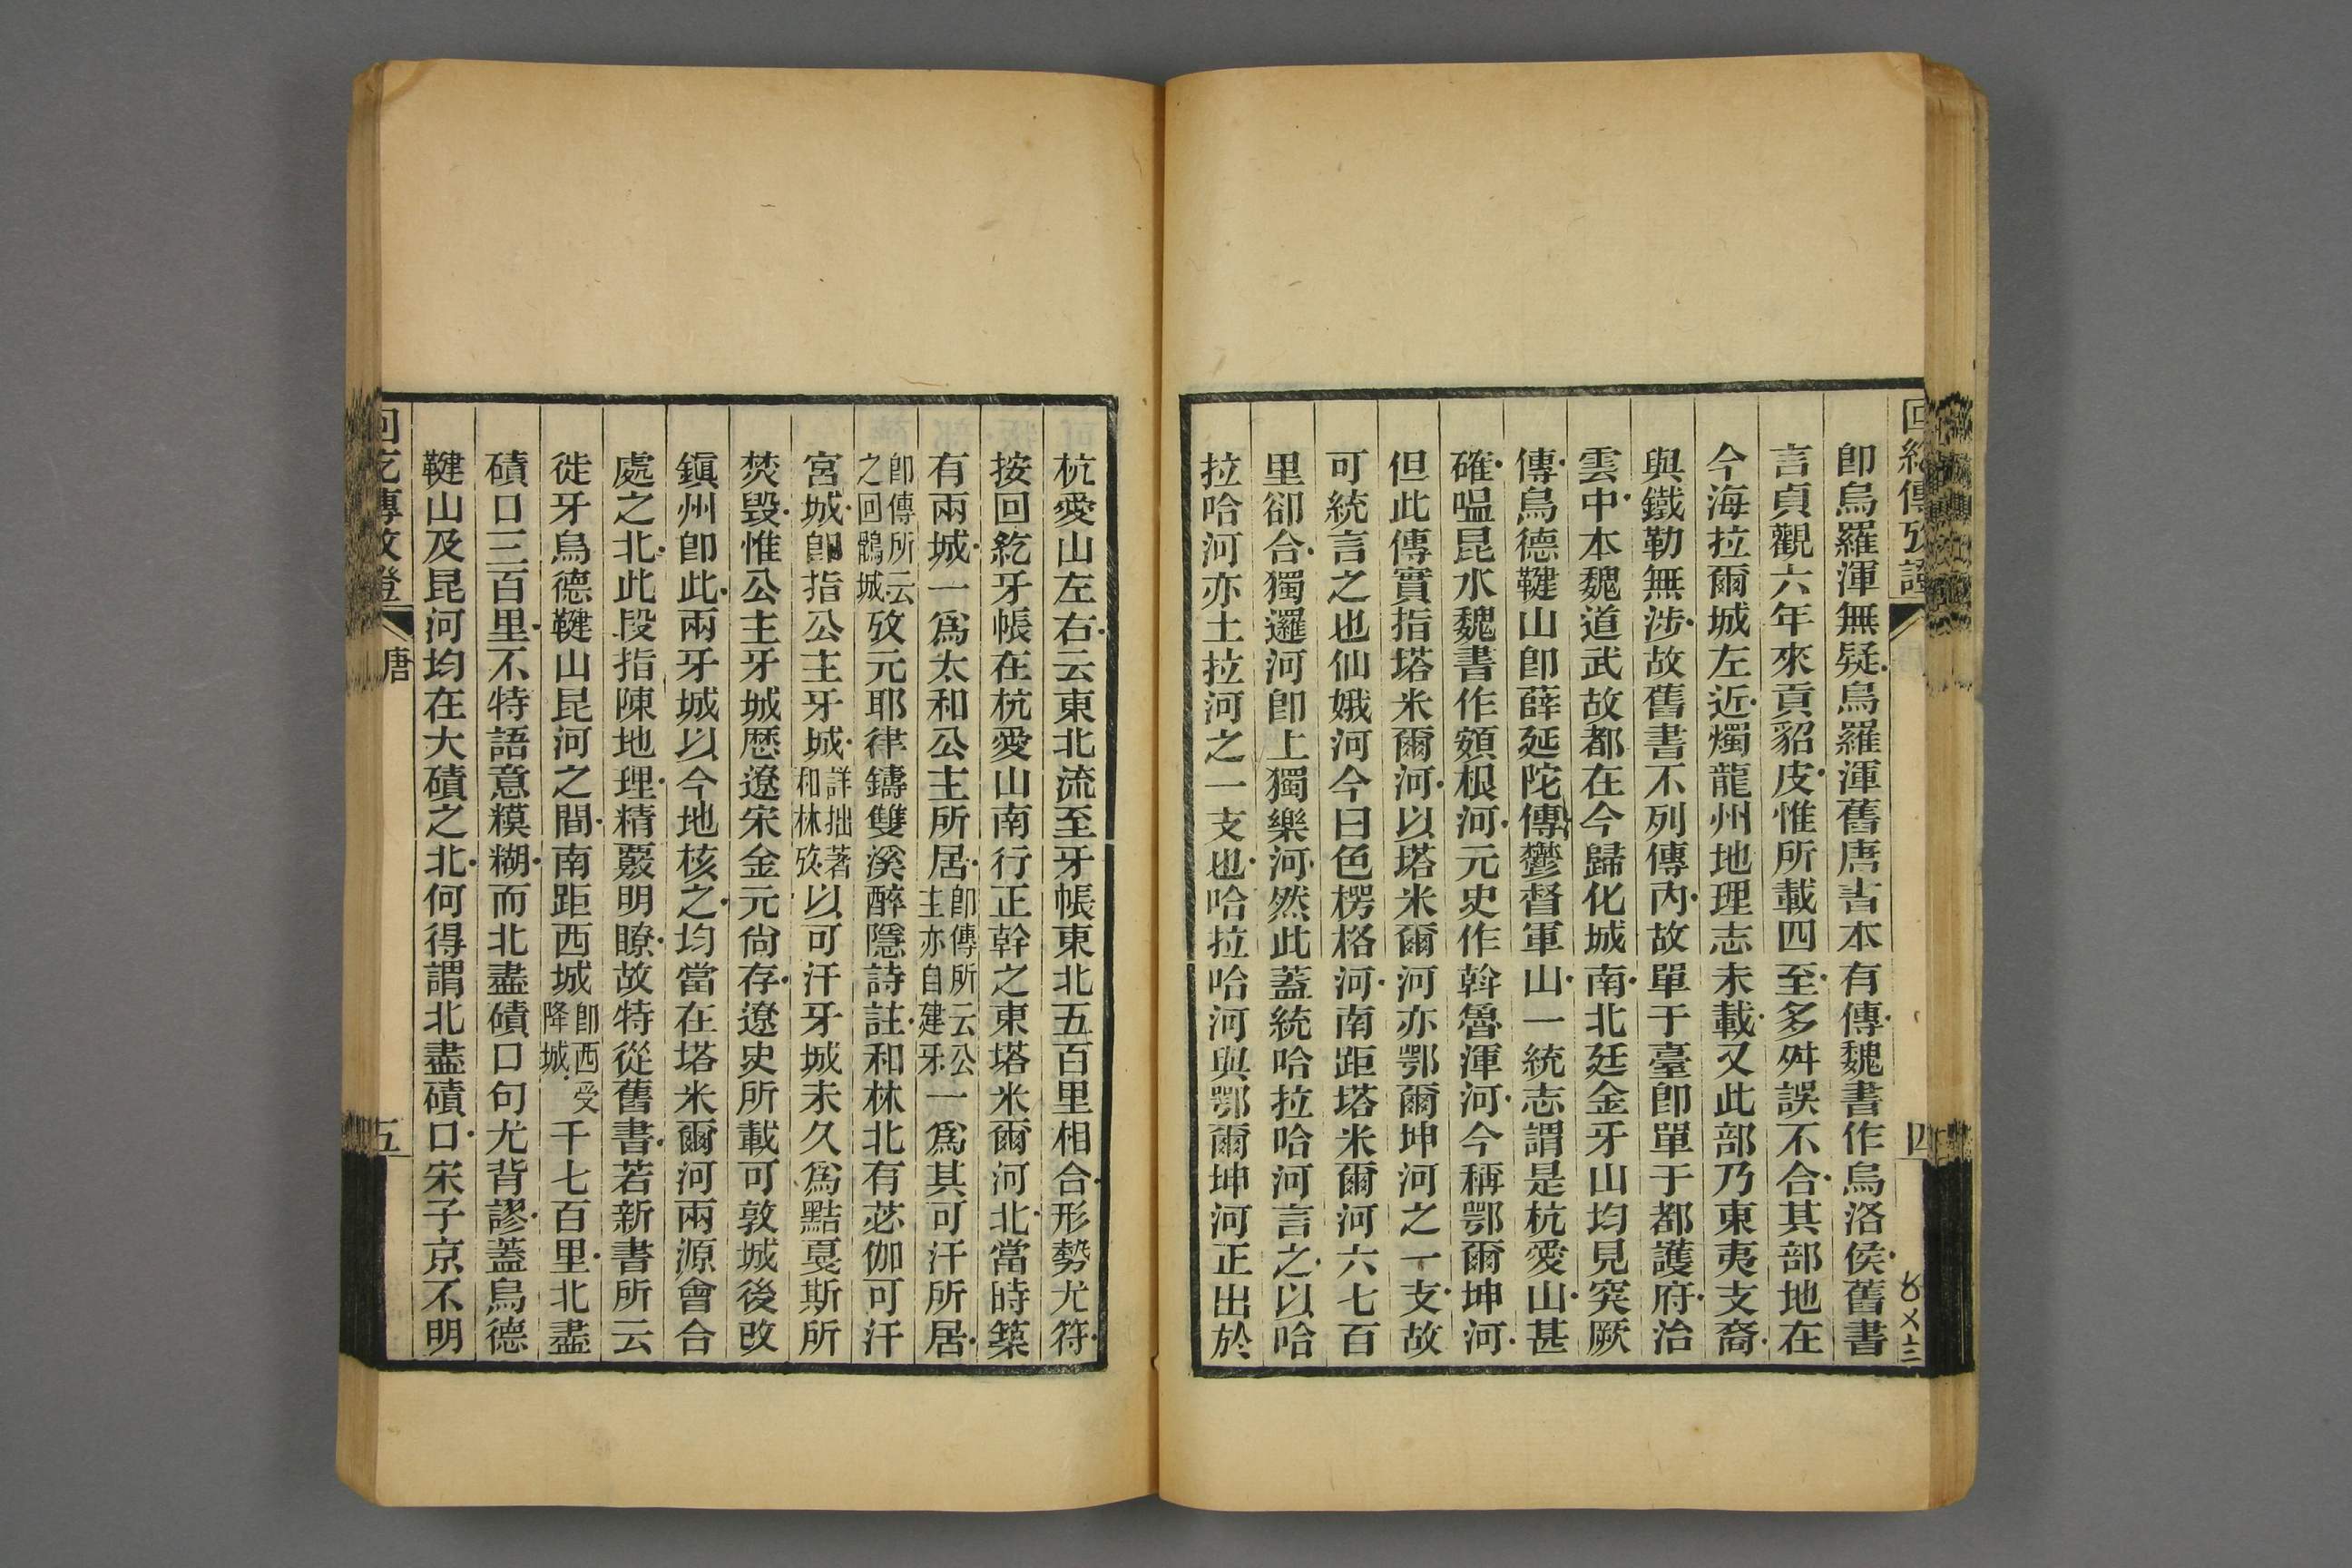 回紇傳攷證
四
卽烏羅渾無疑烏羅渾舊唐書本有傳魏書作烏洛侯舊書
言貞觀六年來貢貂皮惟所載四至多舛誤不合其部地在
今海拉爾城左近燭龍州地理志未載又此部乃東夷支裔
與鐵勒無涉故舊書不列傳內故單于臺卽單于都護府治
雲中本魏道武故都在今歸化城南北廷金牙山均見突厥
傳烏德鞬山卽薛延陀傳鬱督軍山一統志謂是杭愛山甚
確嗢昆水魏書作頞根河元史作斡魯渾河今稱鄂爾坤河
但此傳實指塔米爾河以塔米爾河亦鄂爾坤河之一支故
可統言之也仙娥河今曰色楞格河南距塔米爾河六七百
里卻合獨邏河卽上獨樂河然此蓋統哈拉哈河言之以哈
拉哈河亦土拉河之一支也哈拉哈河與鄂爾坤河正出於
杭愛山左右云東北流至牙帳東北五百里相合形勢尤符
按回紇牙帳在杭愛山南行正幹之東塔米爾河北當時築
有兩城一爲太和公主所居卽傳所云公主亦自建牙一爲其可汗所居
卽傳所云之回鶻城攷元耶律鑄雙溪醉隱詩註和林北有苾伽可汗
宮城卽指公主牙城詳拙著和林攷以可汗牙城未久爲黠戛斯所
焚毀惟公主牙城歷遼宋金元尙存遼史所載可敦城後改
鎮州卽此兩牙城以今地核之均當在塔米爾河兩源會合
處之北此段指陳地理精覈明瞭故特從舊書若新書所云
徙牙烏德鞬山昆河之間南距西城卽西受降城千七百里北盡
磧口三百里不特語意糢糊而北盡磧口句尤背謬蓋烏德
鞬山及昆河均在大磧之北何得謂北盡磧口宋子京不明
回紇傳攷證
唐
五